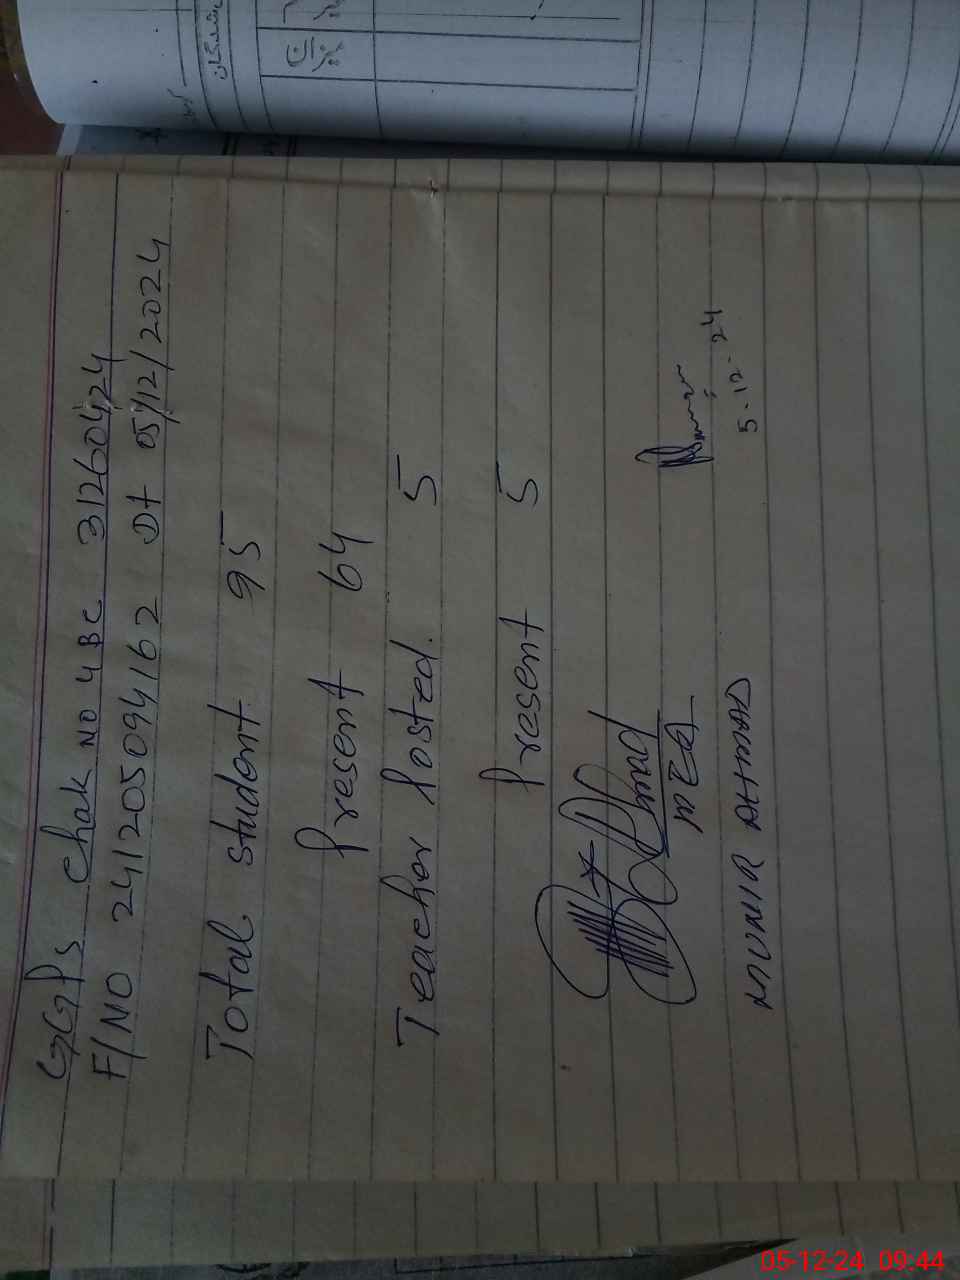 GGPS Chak NO 4 BC 31260424
F/NO 241205094162 Dt 05/12/2024
Total student 95
Present 64
Teacher Posted. 5
Present 5
Ahmad
MEA
5-12-24
MUNIR AHMAD
05-12-24 09:44